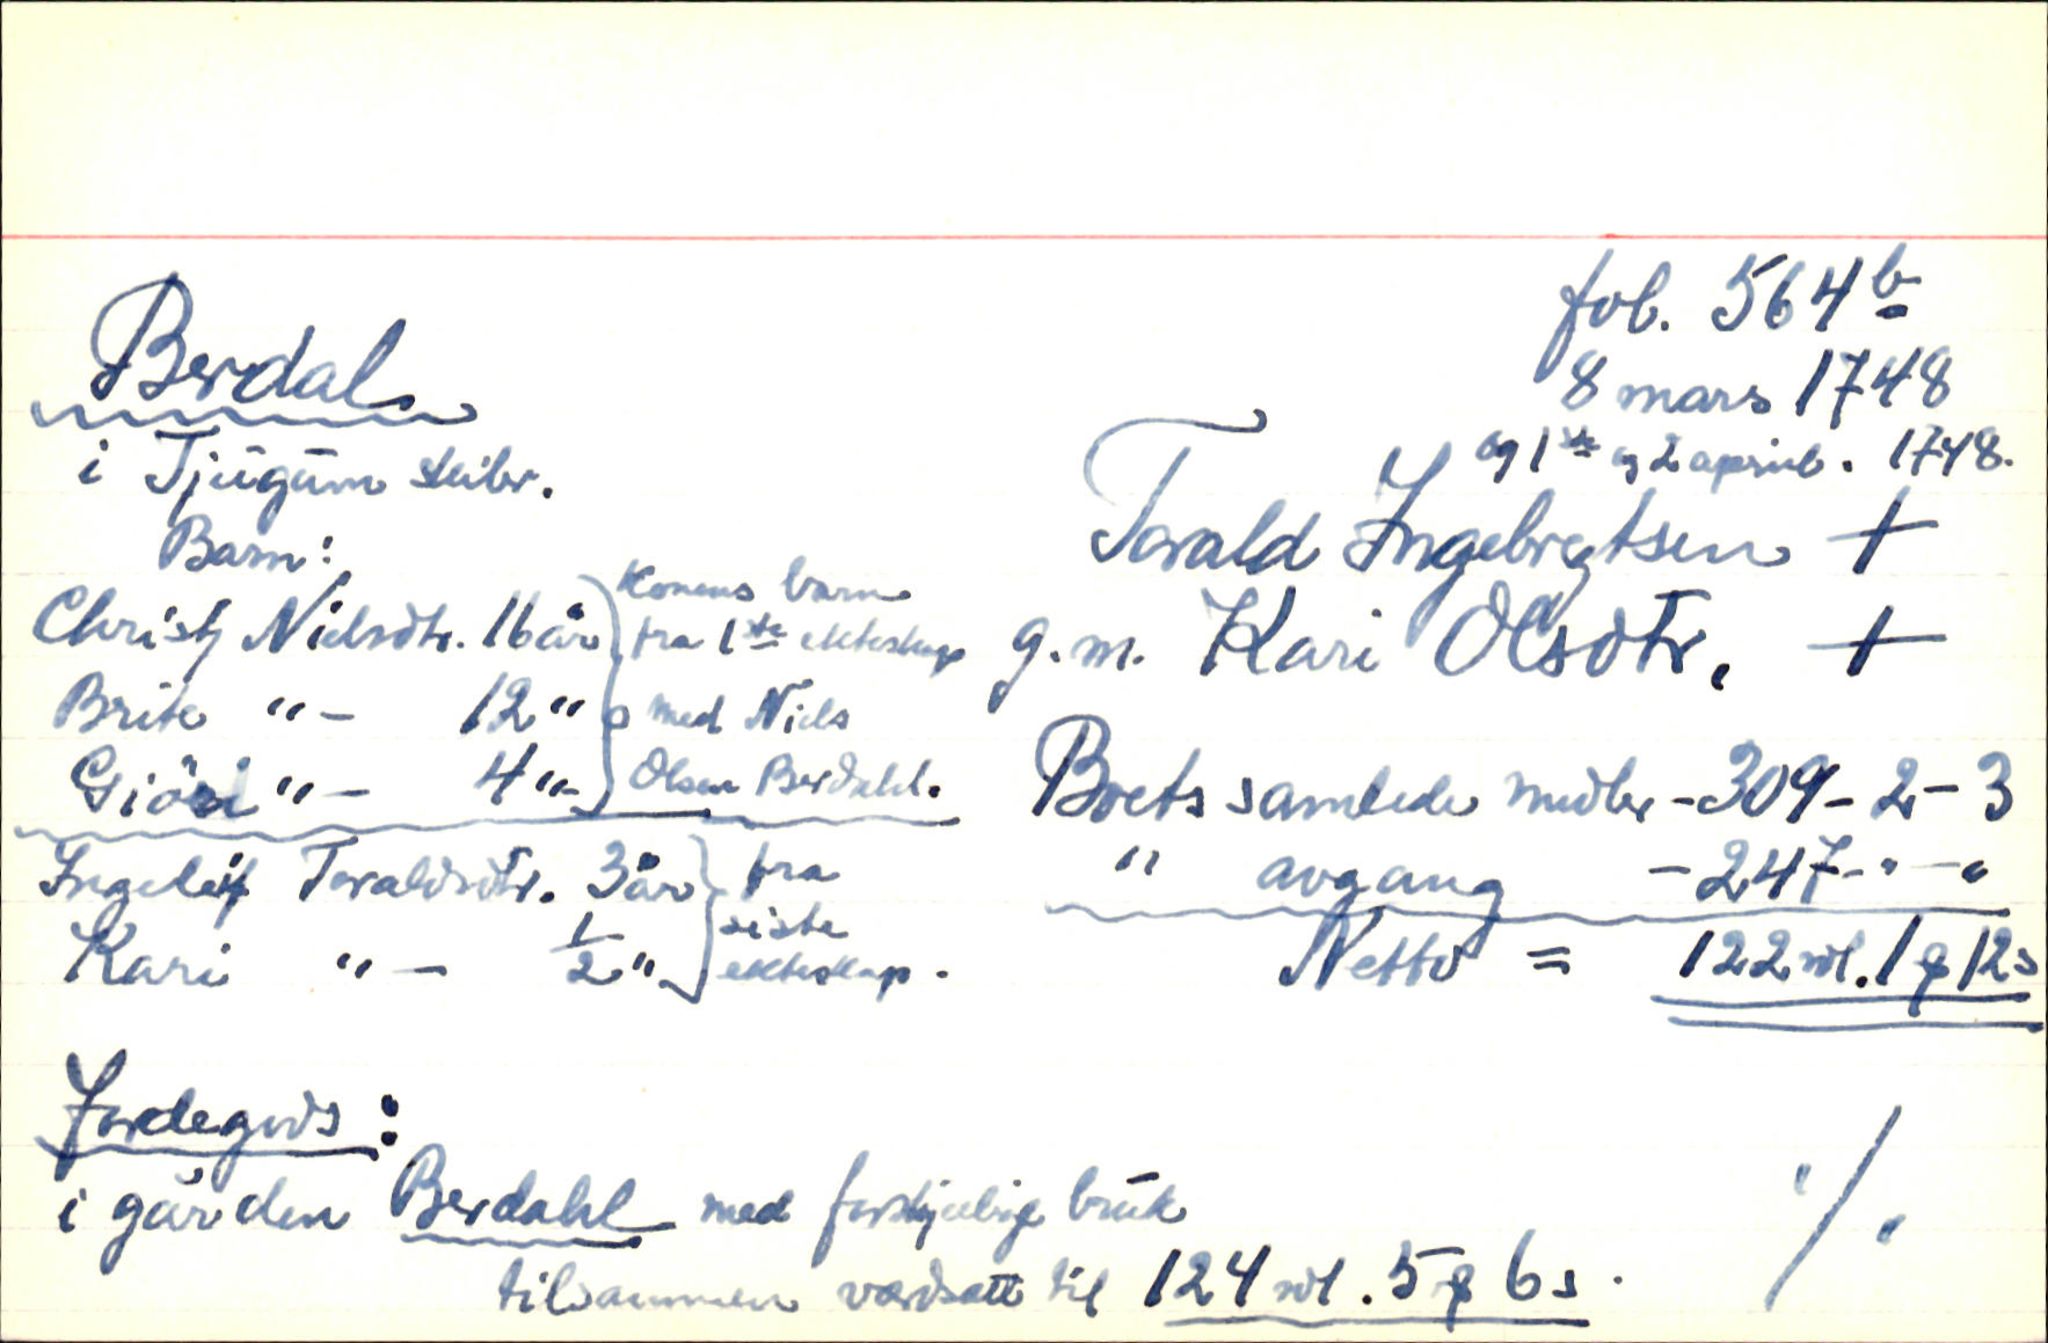 fol. 564b
8 mars 1748
og 1ste og 2 april. 1748.
Berdal
i Tjugum skibr.
Torald Ingebregtsen +
g. m. Kari Olsdtr. +
Barn:
Christj Nielsdtr. 16 år
Brite "- 12 "
Giöri "- 4 "-
konens barn
fra 1ste ekteskap
med Niels
Olsen Berdahl.
Ingelöf Toraldsdtr. 3 år
Kari "- 1/2 "
fra
siste
ekteskap.
Boets samlede midler - 309 - 2 - 3
" avgang - 247 - " - "
Netto = 122 rdl. 1 ɟ 12 s
Jordegods:
i gården Berdahl med forskjelig bruk
tilsammen værdsatt til 124 rdl. 5 ɟ 6 s.
./.